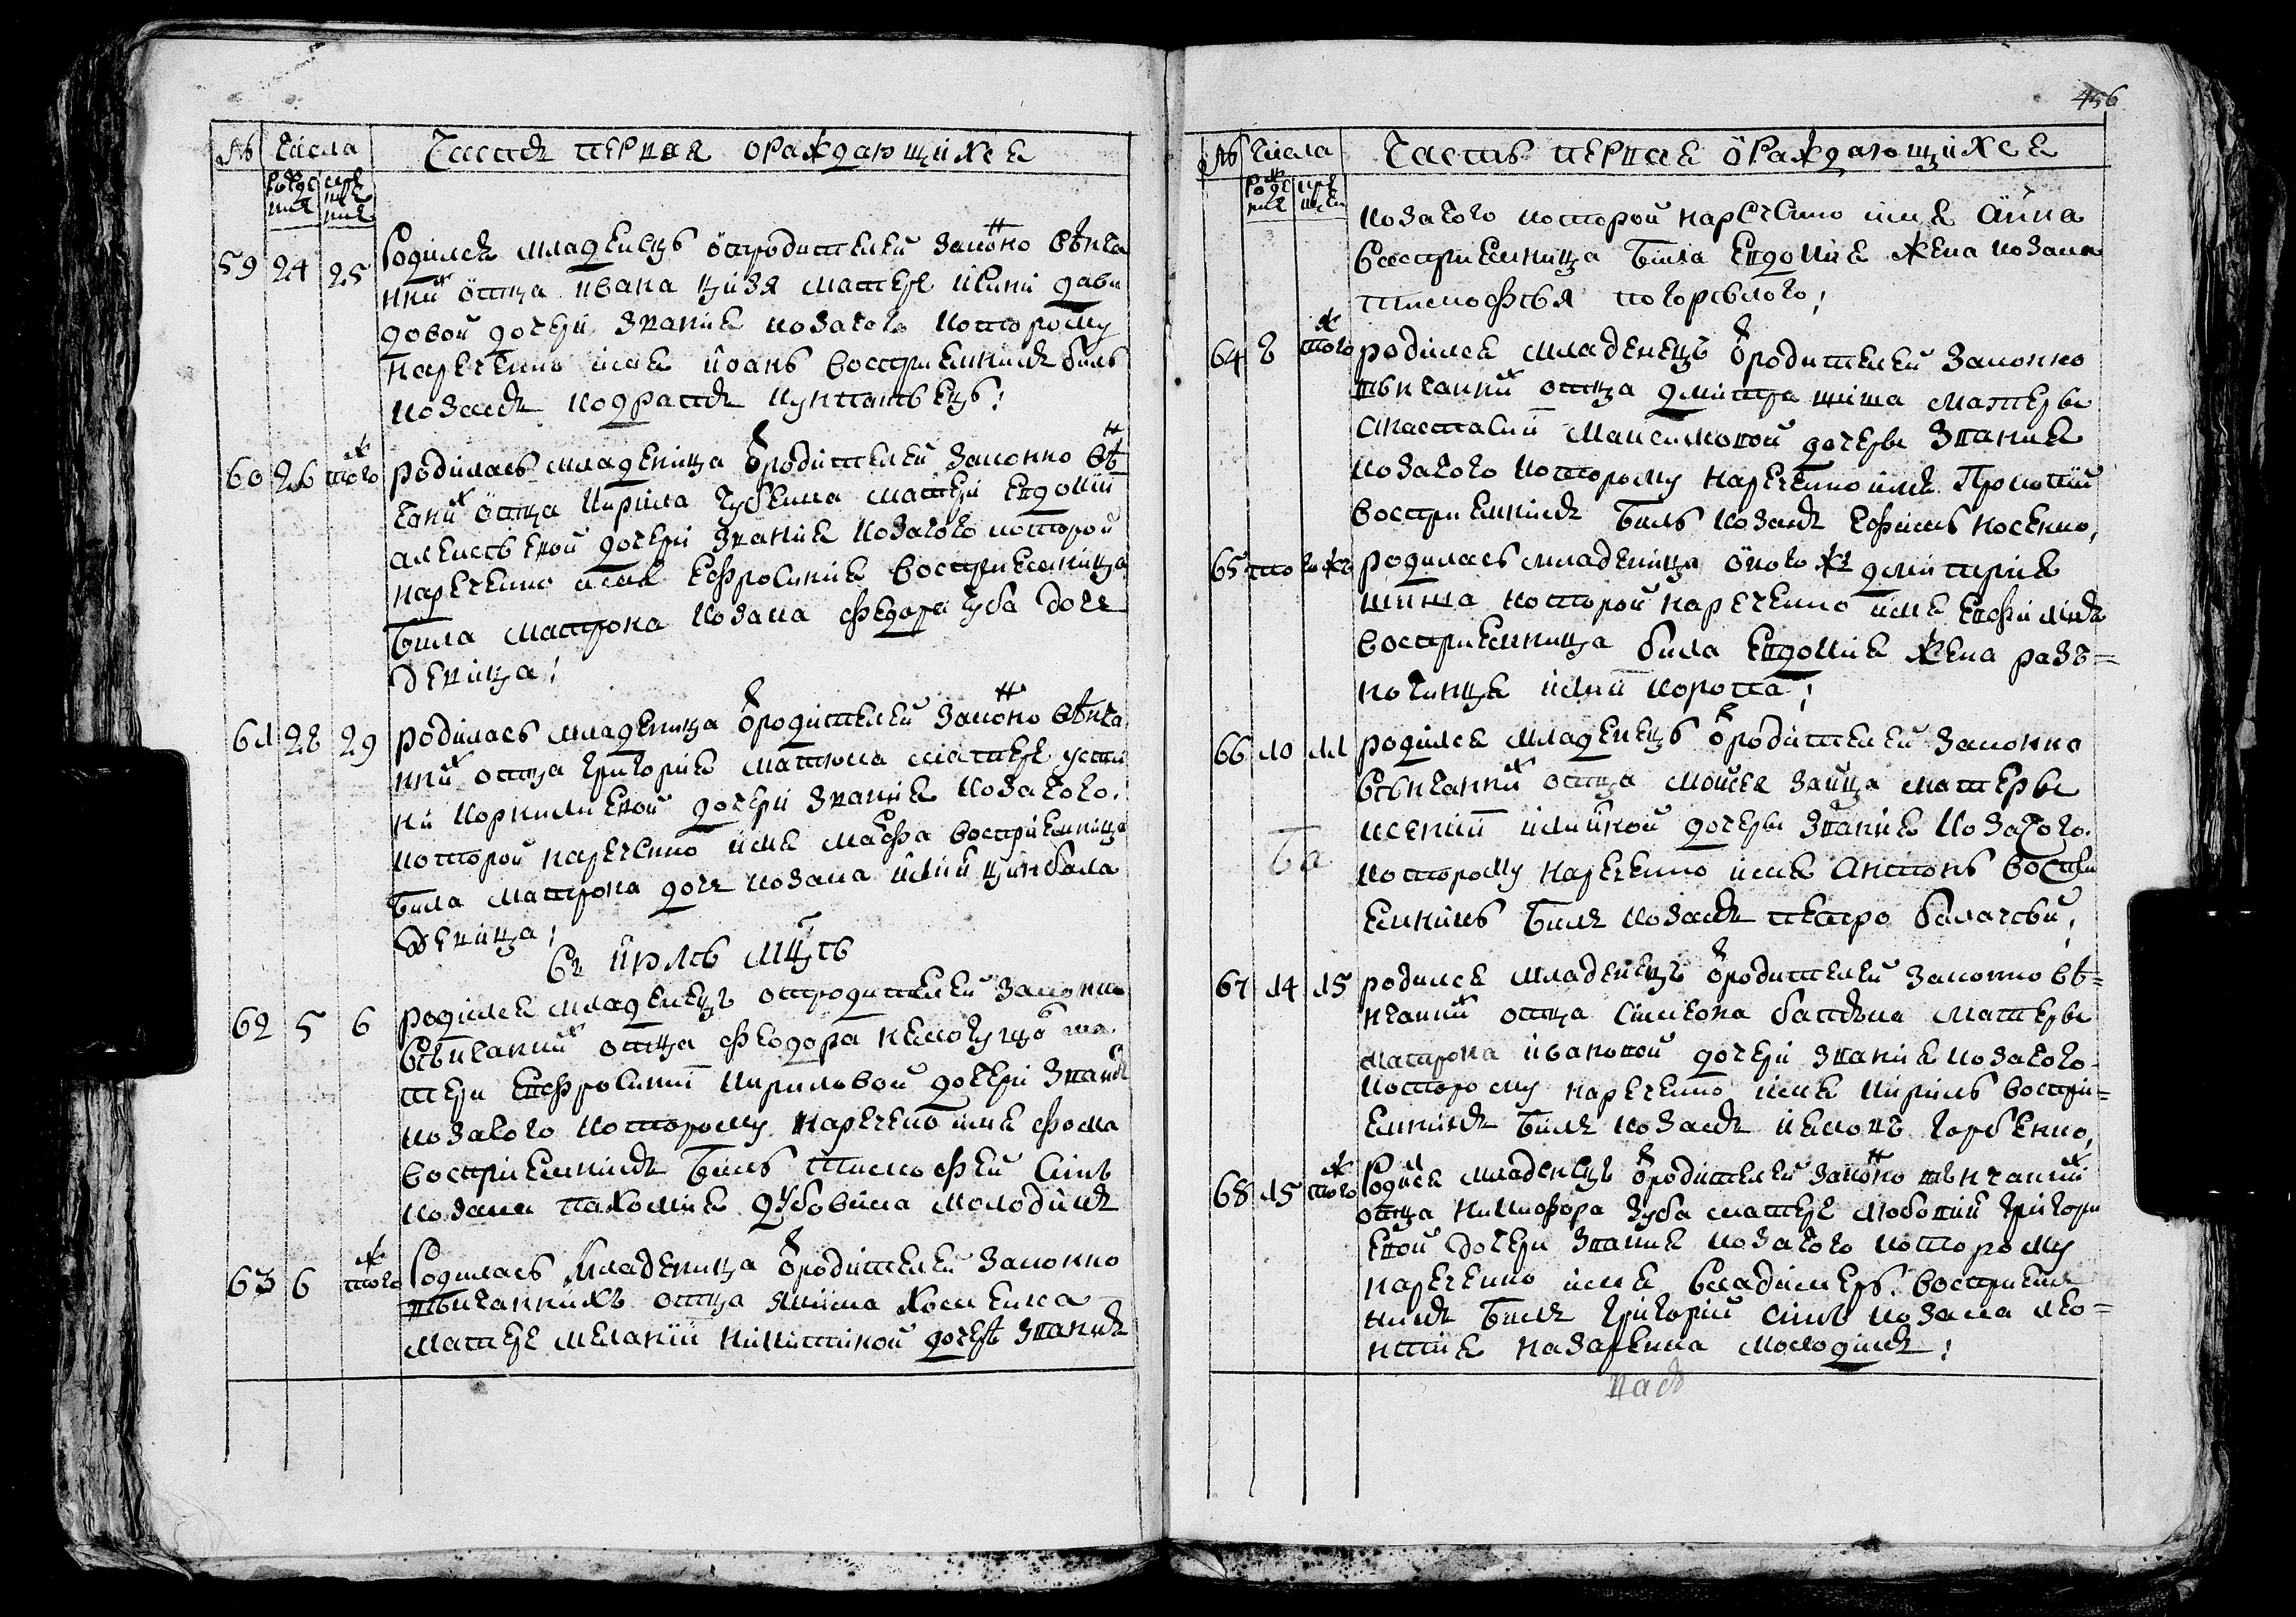 № Числа Часть первая ораждающихся
рожде крще
ния ния
59 24 25 Родился младенецъ ѿродителей законо вѣнча
нних отца Ивана материе Ирини Дави
довой дочери звания козачого которому
наречено имя Иоанъ восприемникъ билъ
козакъ Кодратъ
60 26 того ж родилась младеница ѿ родителей законно вѣн
чаних отца Кирила Губенка матери Евдокии
Алексѣевой дочери звания козачого которой
наречено имя Ефросиния восприемница
била Матрона козака Федора Губа доче
девица
61 28 29 родилась младеница ѿ родителей законо вѣнча
нних отца Григория материе Усти
нии Корнилиевой дочери звания козачого
которой наречено имя Марфа восприемница
била Матрона доче козака Илии Цимбала
девица
Въ июлѣ мцѣ
62 5 6 родился младенецъ отродителей законно
вѣнчаних отца Феодора ма
тери Евфросинии Кириловой дочери звания
козачого которому наречено имя Фома
восприемникъ билъ Тимофей синъ
козака Пахомия Дубовика молодикъ
63 6 того ж Родилась младеница ѿ родителей законно
вѣнчаннихъ отца Якима Хоменка
материе Мелании Никитиной дочерѣ звания
456
№ Числа Часть первая ораждающихся
рожде крще
ния ния
козачого которой наречено имя Анна
восприемница била Евдокия жена козака
Тимофѣя Погорѣлого
64 8 того ж родился младенецъ ѿ родителей законно
вѣнчаних отца Дмитра матерѣ
Анастасии Максимовой дочерѣ звания
козачого которому наречено имя Прокопий
восприемникъ билъ козакъ Ефимъ Косенко
65 того ж родилась младеница ѿ того ж Дмитрия
которой наречено имя Евфимия
восприемница била Евдокия жена разъ=
ночинца Илии Коропа
66 10 11 родился младенецъ ѿ родителей законно
вѣнчаних отца Моисея Зайца матерѣ
Ксении Илииной дочерѣ звания козачого
которому наречено имя Антонъ воспри
емникъ билъ козакъ Петро
67 14 15 родился младенецъ ѿ родителей законно вѣ=
нчаних отца Симеона матерѣ
Матрона Ивановой дочери звания козачого
которому наречено имя Кирилъ воспри=
емникъ билъ козакъ Яковъ Горбенко
68 15 того ж Родился младенецъ ѿ родителей законо вѣнчаних
отца Никифора Зуба материе Любовии Григори
евой дочери звания козачого которому
наречено имя Владимеръ восприем
никъ билъ Григорий синъ козака Лео=
нтия Назаренка молодикъ